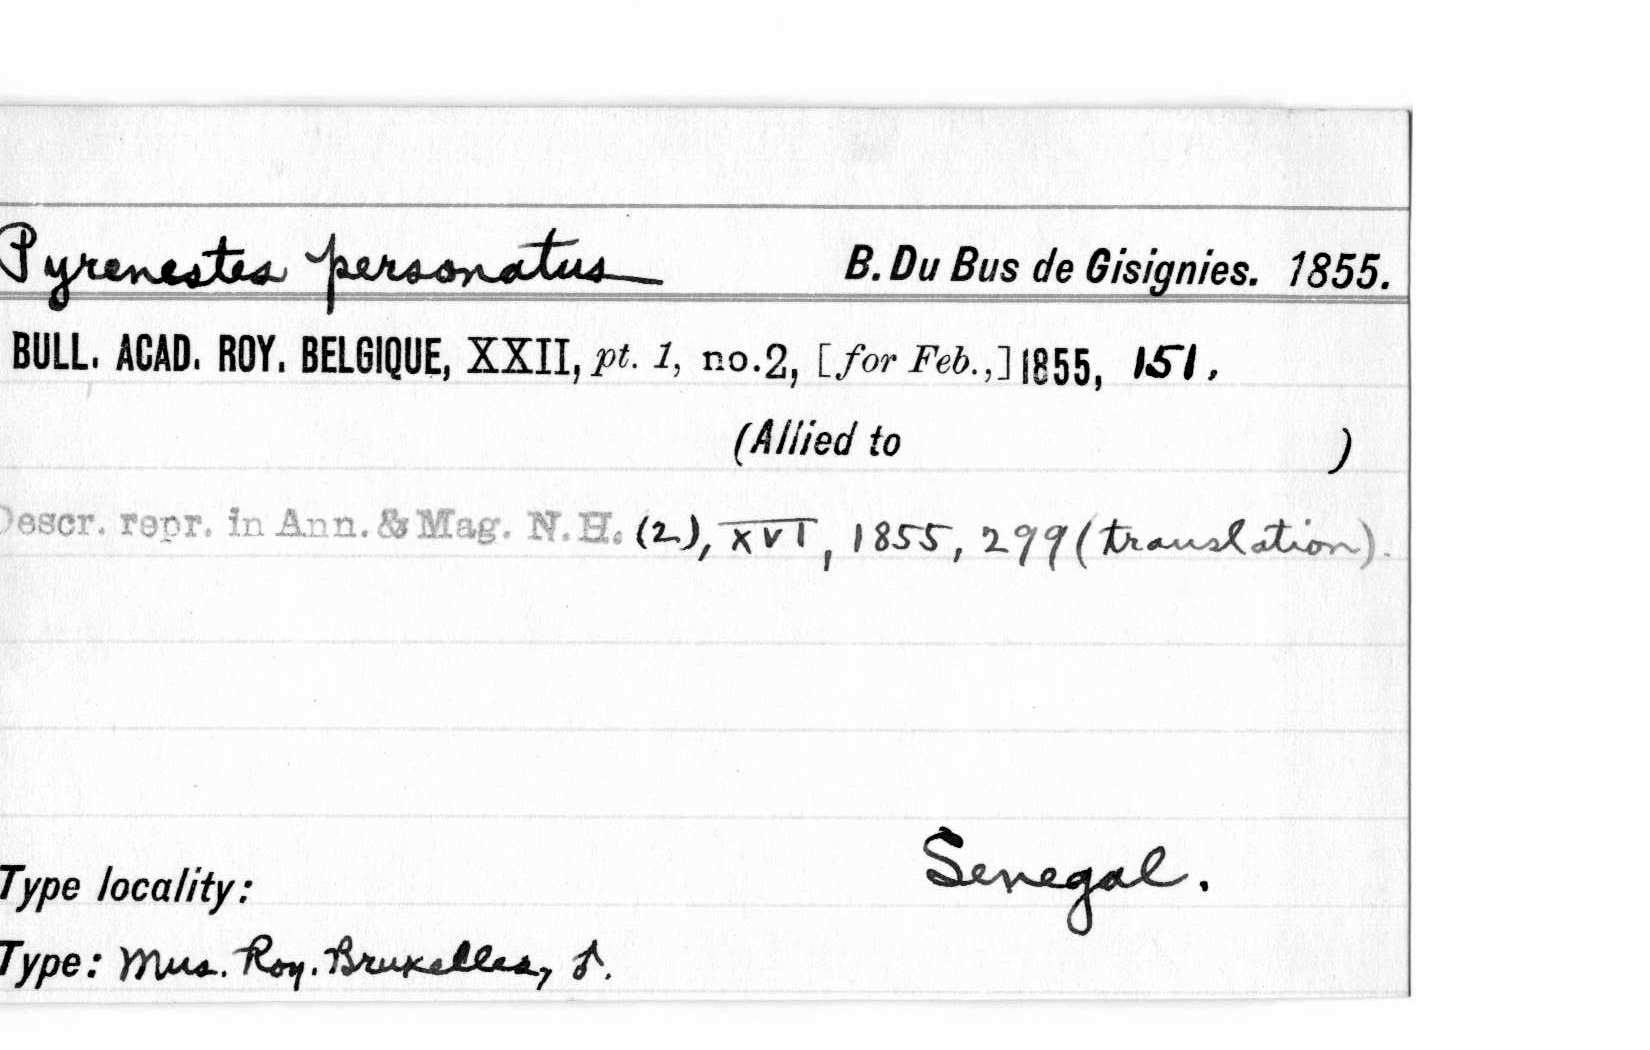 Pyrenestes personatus B. Du Bus de Gisignies. 1855.
BULL. ACAD. ROY. BELGIQUE, XXII, pt. 1, no. 2, [for Feb.,] 1855, 151.
(Allied to )
Descr. repr. in Ann. & Mag. N.H. (2), XVI, 1855, 299 (translation).
Senegal.
Type locality:
Type: Mus. Roy. Bruxelles, ♂.